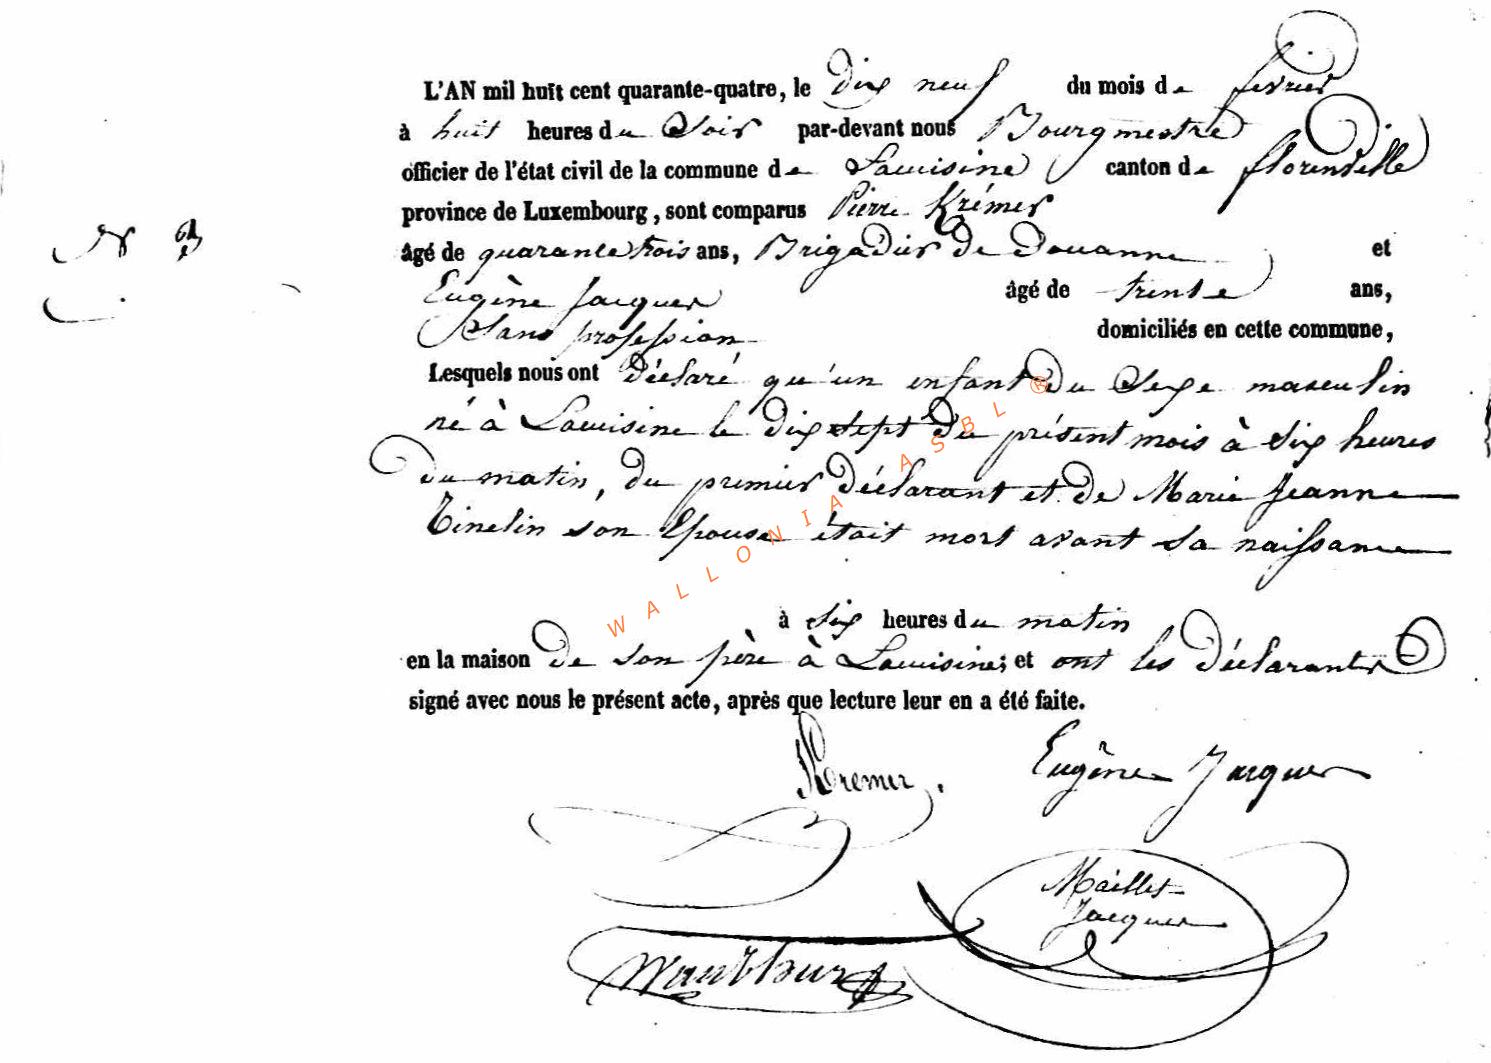 L'AN mil huit cent quarante-quatre, le dix neuf du mois de fevrier
à huit heures du Soir par-devant nous Bourgmestre
officier de l'état civil de la commune de Lacuisine canton de florenville
province de Luxembourg, sont comparus Pierre Krémer
N° 3
âgé de quarante trois ans, Brigadier de Douanne et
Eugène Jacques âgé de trente ans,
Sans profession domiciliés en cette commune,
Lesquels nous ont déclaré qu'un enfant du Sexe masculin
né à Lacuisine le dix sept du présent mois à six heures
du matin, du premier déclarant et de Marie Jeanne
Tinelin son Epouse était mort avant sa naissance
à six heures du matin
en la maison de son père à Lacuisine; et ont les déclarants
signé avec nous le présent acte, après que lecture leur en a été faite.
Kremer. Eugène Jacques
Maillet
Jacques
WALLONIA ASBL ®